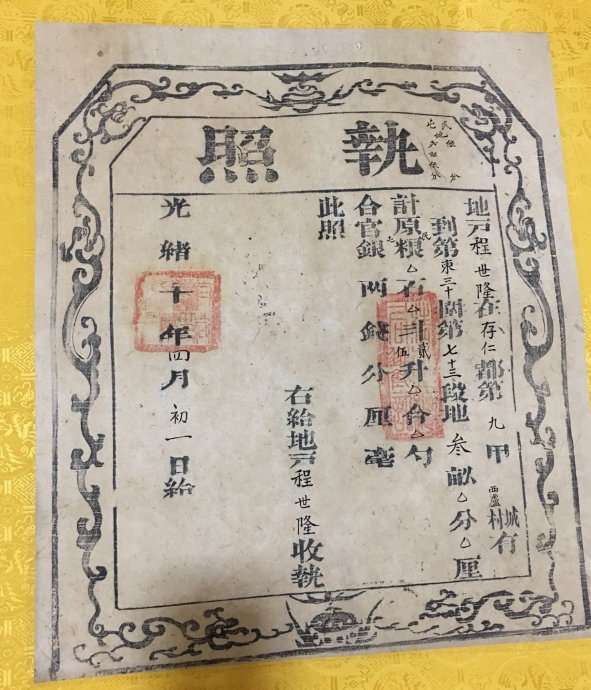 執照
地戸程世隆在存仁都第九甲西盧村城有
到第東三十圖第七十三段地叁畝厶分厶厘
計原粮厶石厶斗貳升厶合厶勺
合官銀両錢分厘毫
此照
右給地戸程世隆收執
光緒十年四月初一日給